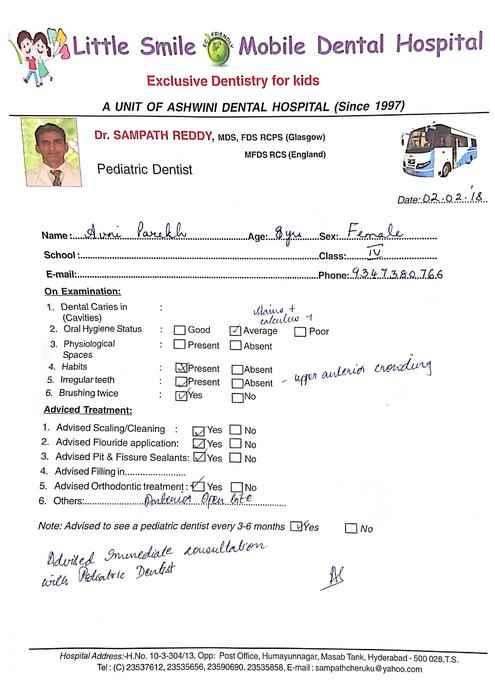 Little Smile ECO FRIENDLY Mobile Dental Hospital
Exclusive Dentistry for kids
A UNIT OF ASHWINI DENTAL HOSPITAL (Since 1997)
Dr. SAMPATH REDDY, MDS, FDS RCPS (Glasgow)
MFDS RCS (England)
Pediatric Dentist
Date: 02.02.'18
Name: Avni Parekh Age: 8yrs Sex: Female
School: Class: IV
E-mail: Phone: 9347380766
On Examination:
1. Dental Caries in (Cavities) :
Stains +
calculus +
2. Oral Hygiene Status : Good Average Poor
3. Physiological Spaces : Present Absent
4. Habits : Present Absent
5. Irregular teeth : Present Absent - upper anterior crowding
6. Brushing twice : Yes No
Adviced Treatment:
1. Advised Scaling/Cleaning : Yes No
2. Advised Flouride application: Yes No
3. Advised Pit & Fissure Sealants: Yes No
4. Advised Filling in
5. Advised Orthodontic treatment: Yes No
6. Others: Anterior Open bite
Note: Advised to see a pediatric dentist every 3-6 months Yes No
Advised Immediate consultation
with Pediatric Dentist
Hospital Address:-H.No. 10-3-304/13, Opp: Post Office, Humayunnagar, Masab Tank, Hyderabad - 500 028,T.S.
Tel : (C) 23537612, 23535656, 23590690, 23535858, E-mail : sampathcheruku@yahoo.com